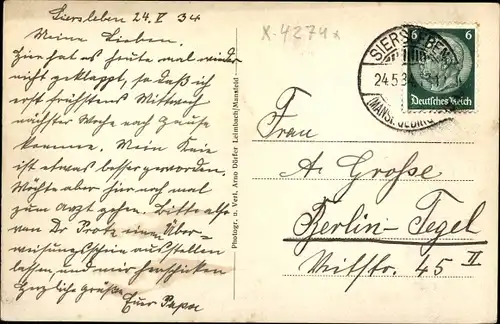 Siersleben 24.V 34
Meine Lieben.
Hier hat es heute mal wieder
nicht geklappt, so daß ich
erst frühstens Mittwoch
nächster Woche nach Hause
komme. Mein Knie
ist etwas besser geworden.
Möchte aber hier noch mal
zum Arzt gehen. Bitte also
von Dr Protz einen Über-
weisungsschein ausstellen
lassen, und mir herschicken
Herzliche Grüße
Euer Papa
Photogr. u. Verl. Arno Dörfer Leimbach/Mansfeld
X-4274x
6 6
Deutsches Reich
SIERSLEBEN
24.5.34
(MANSF. GEBIRG
Frau
A. Große
Berlin-Tegel
Veitstr. 45 II